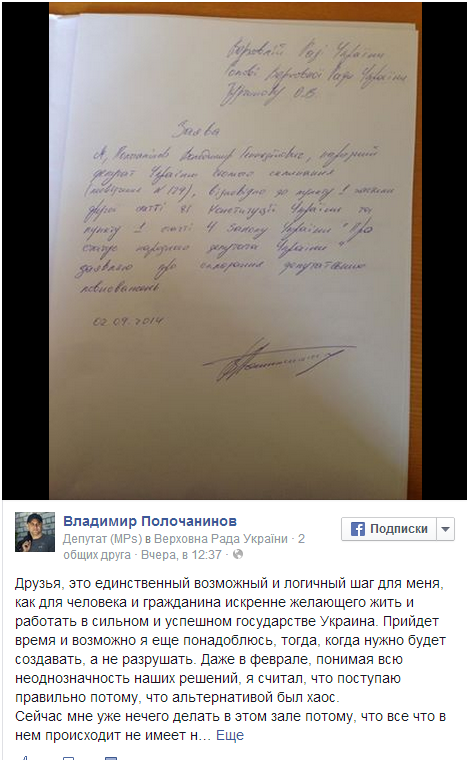 Верховній Раді України
Голові Верховної Ради України
Турчинову О.В.
Заява
Я, Полочанінов Володимир, народний
депутат України сьомого скликання
(посвідчення №189), відповідно до пункту 1 частини
другої статті 81 Конституції України та
пункту 1 статті 4 Закону України "Про
статус народного депутата України"
заявляю про складання депутатських
повноважень
02.09.2014
Владимир Полочанинов
Подписки
Депутат (MPs) в Верховна Рада України · 2
общих друга · Вчера, в 12:37 ·
Друзья, это единственный возможный и логичный шаг для меня,
как для человека и гражданина искренне желающего жить и
работать в сильном и успешном государстве Украина. Прийдет
время и возможно я еще понадоблюсь, тогда, когда нужно будет
создавать, а не разрушать. Даже в феврале, понимая всю
неоднозначность наших решений, я считал, что поступаю
правильно потому, что альтернативой был хаос.
Сейчас мне уже нечего делать в этом зале потому, что все что в
нем происходит не имеет н… Еще